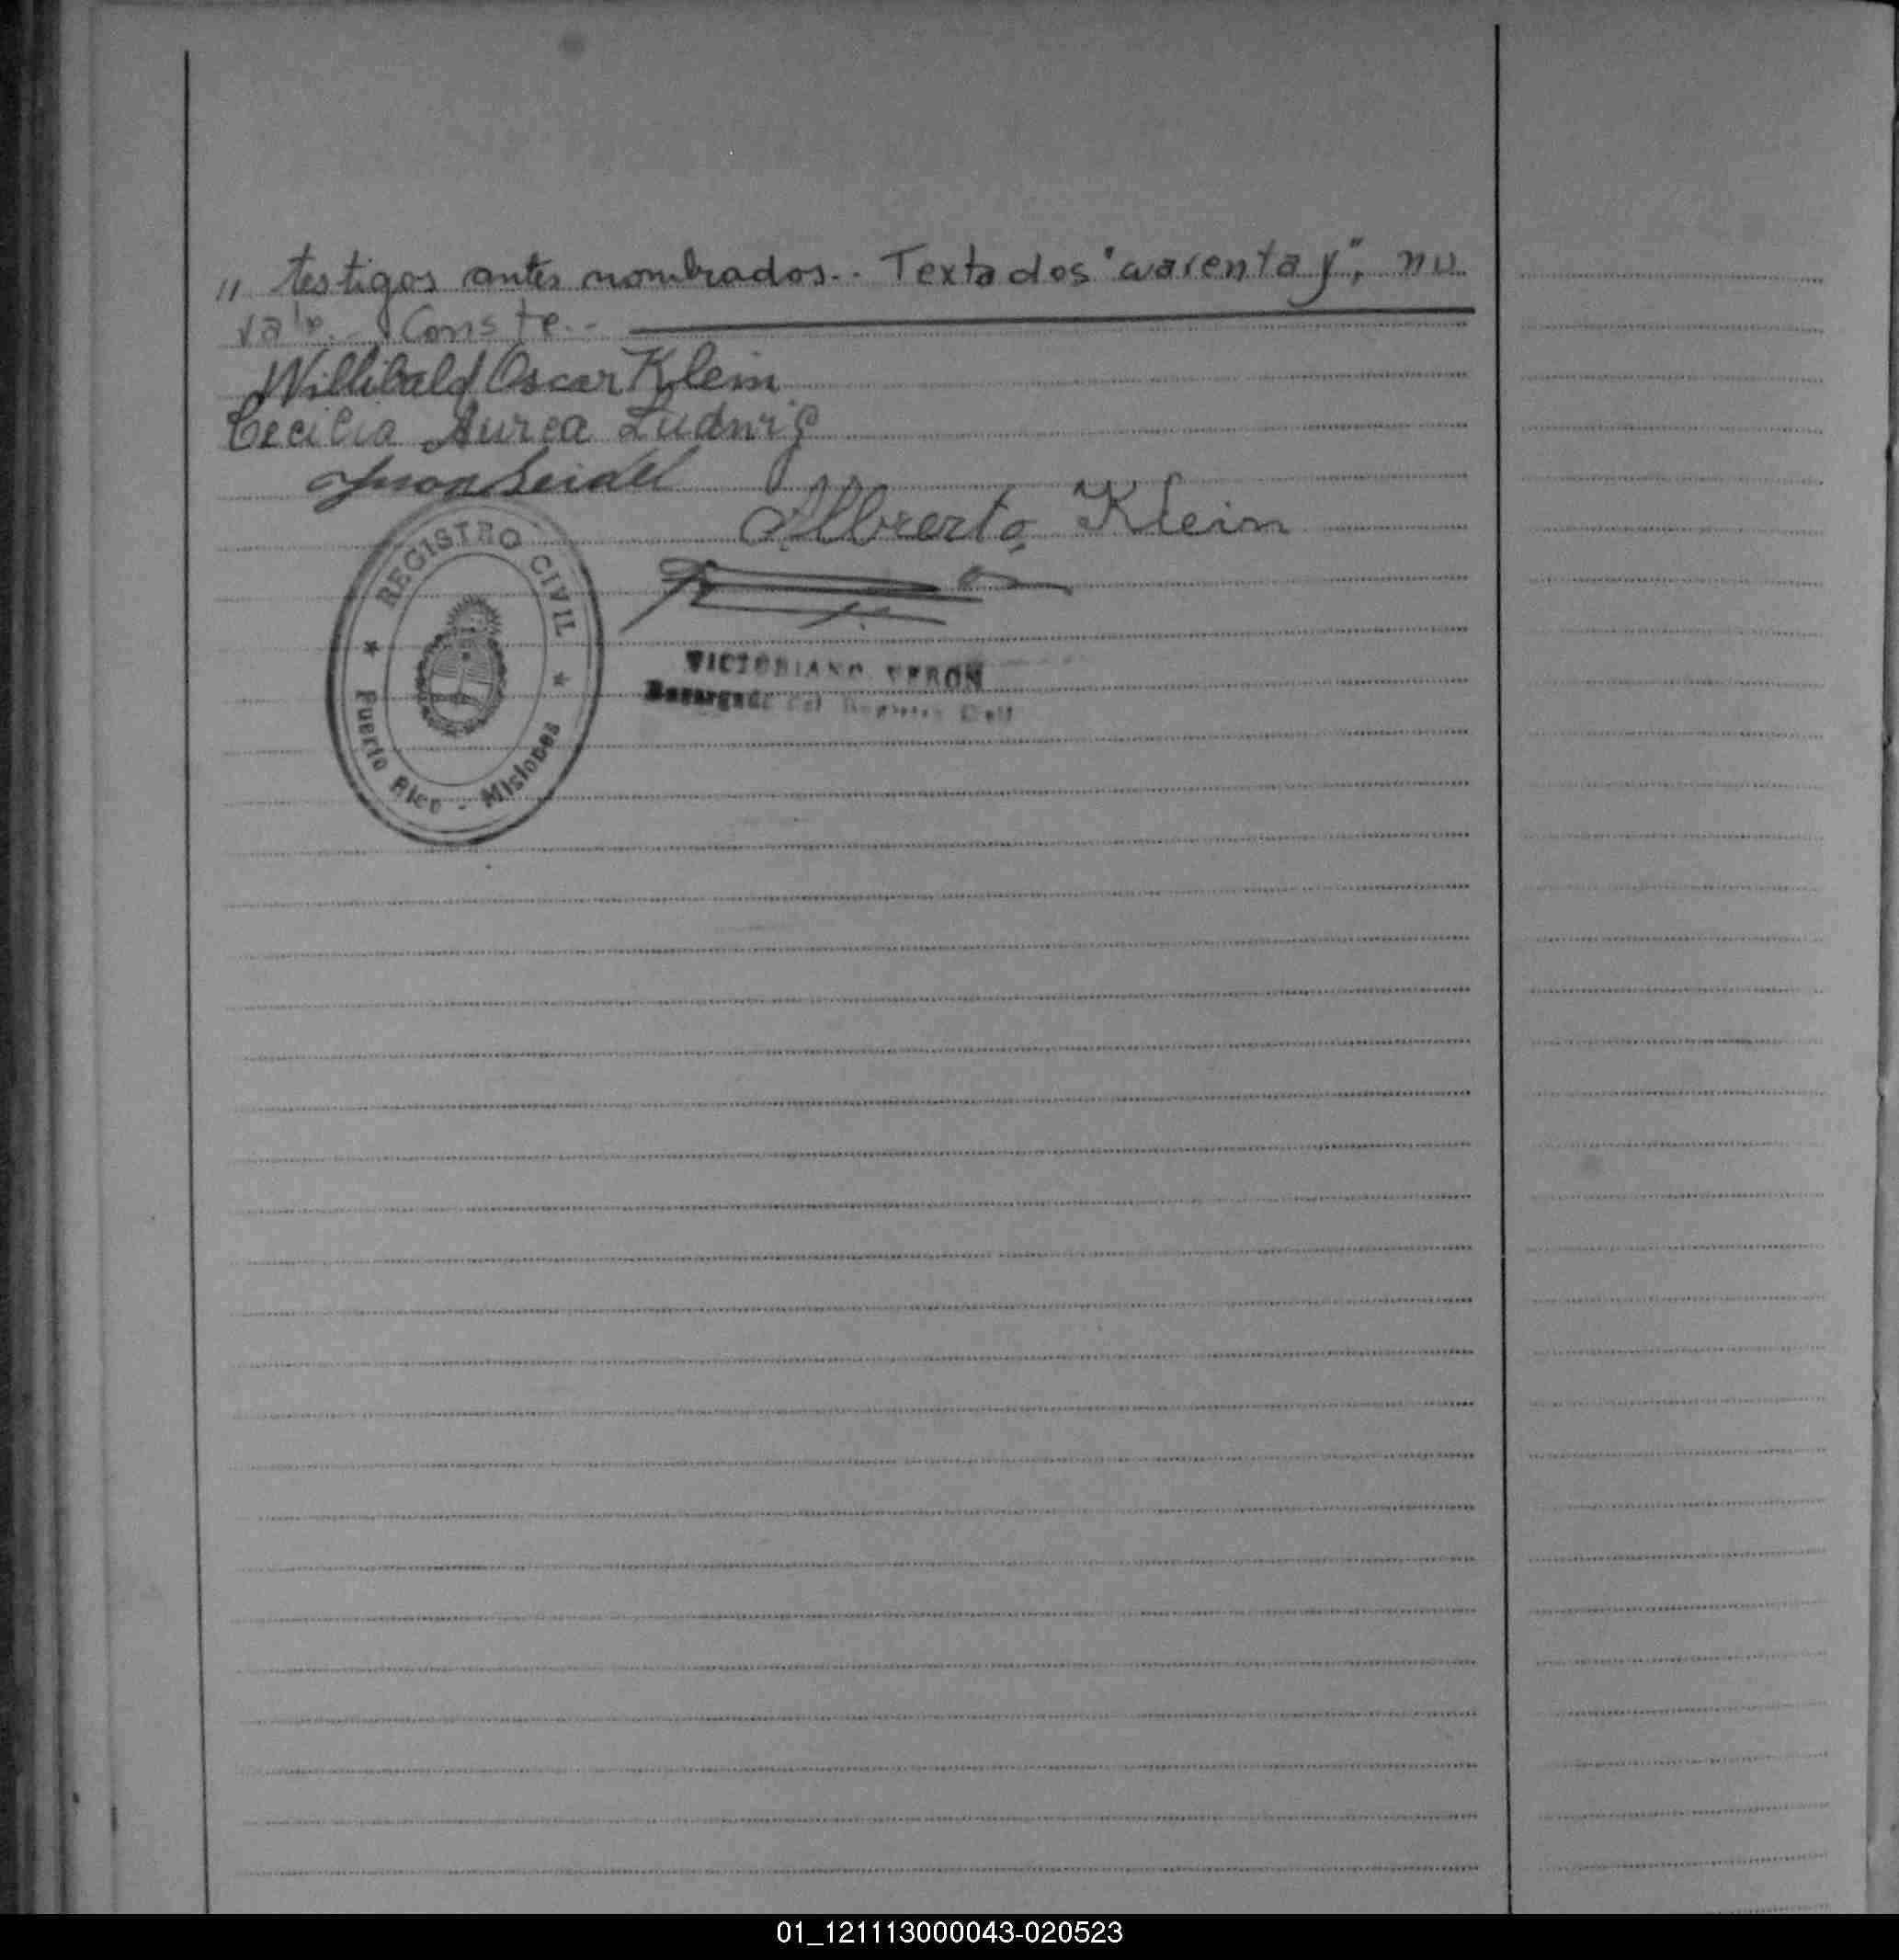 " testigos antes nombrados.- Textados "cuarenta y", no
vale.- Conste.-
Willibald Oscar Klein
Cecilia Aurea Ludwig
Juan Seidel
Alberto Klein
REGISTRO CIVIL
Puerto Rico - Misiones
VICTORIANO VERON
Encargado del Registro Civil
01_121113000043-020523